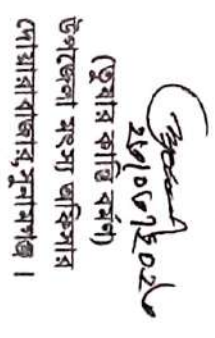 ২৭/০৮/২০২৫
(তুষার কান্তি বর্মণ)
উপজেলা মৎস্য অফিসার
দোয়ারাবাজার, সুনামগঞ্জ।